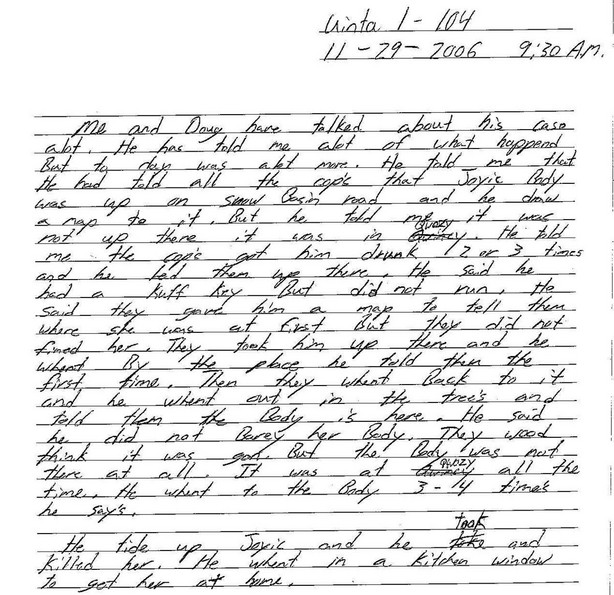 Uinta 1 - 104
11-29-2006 9:30 A.M.
Me and Doug have talked about his case
alot. He has told me alot of what happend
But to day was alot more. He told me that
He had told all the cop's that Joyic Body
was up on snow Basin road and he draw
a map to it. But he told me it was
Quozy
not up there it was in He told
me the cop's got him drunk 2 or 3 times
and he led them up there. He said he
had a Kuff Key But did not run. He
said they gave him a map to tell them
where she was at first But they did not
fined her. They took him up there and he
whent By the place he told then the
first time. Then they whent Back to it
and he whent out in the tree's and
told them the Body is here. He said
he did not Barey her Body. They wood
think it was gon. But the Body was not
Quozy
there at all. It was at all the
time. He whent to the Body 3-4 time's
he say's.
took
He tide up Joyic and he take and
killed her. He whent in a kitchen window
to get her at home.